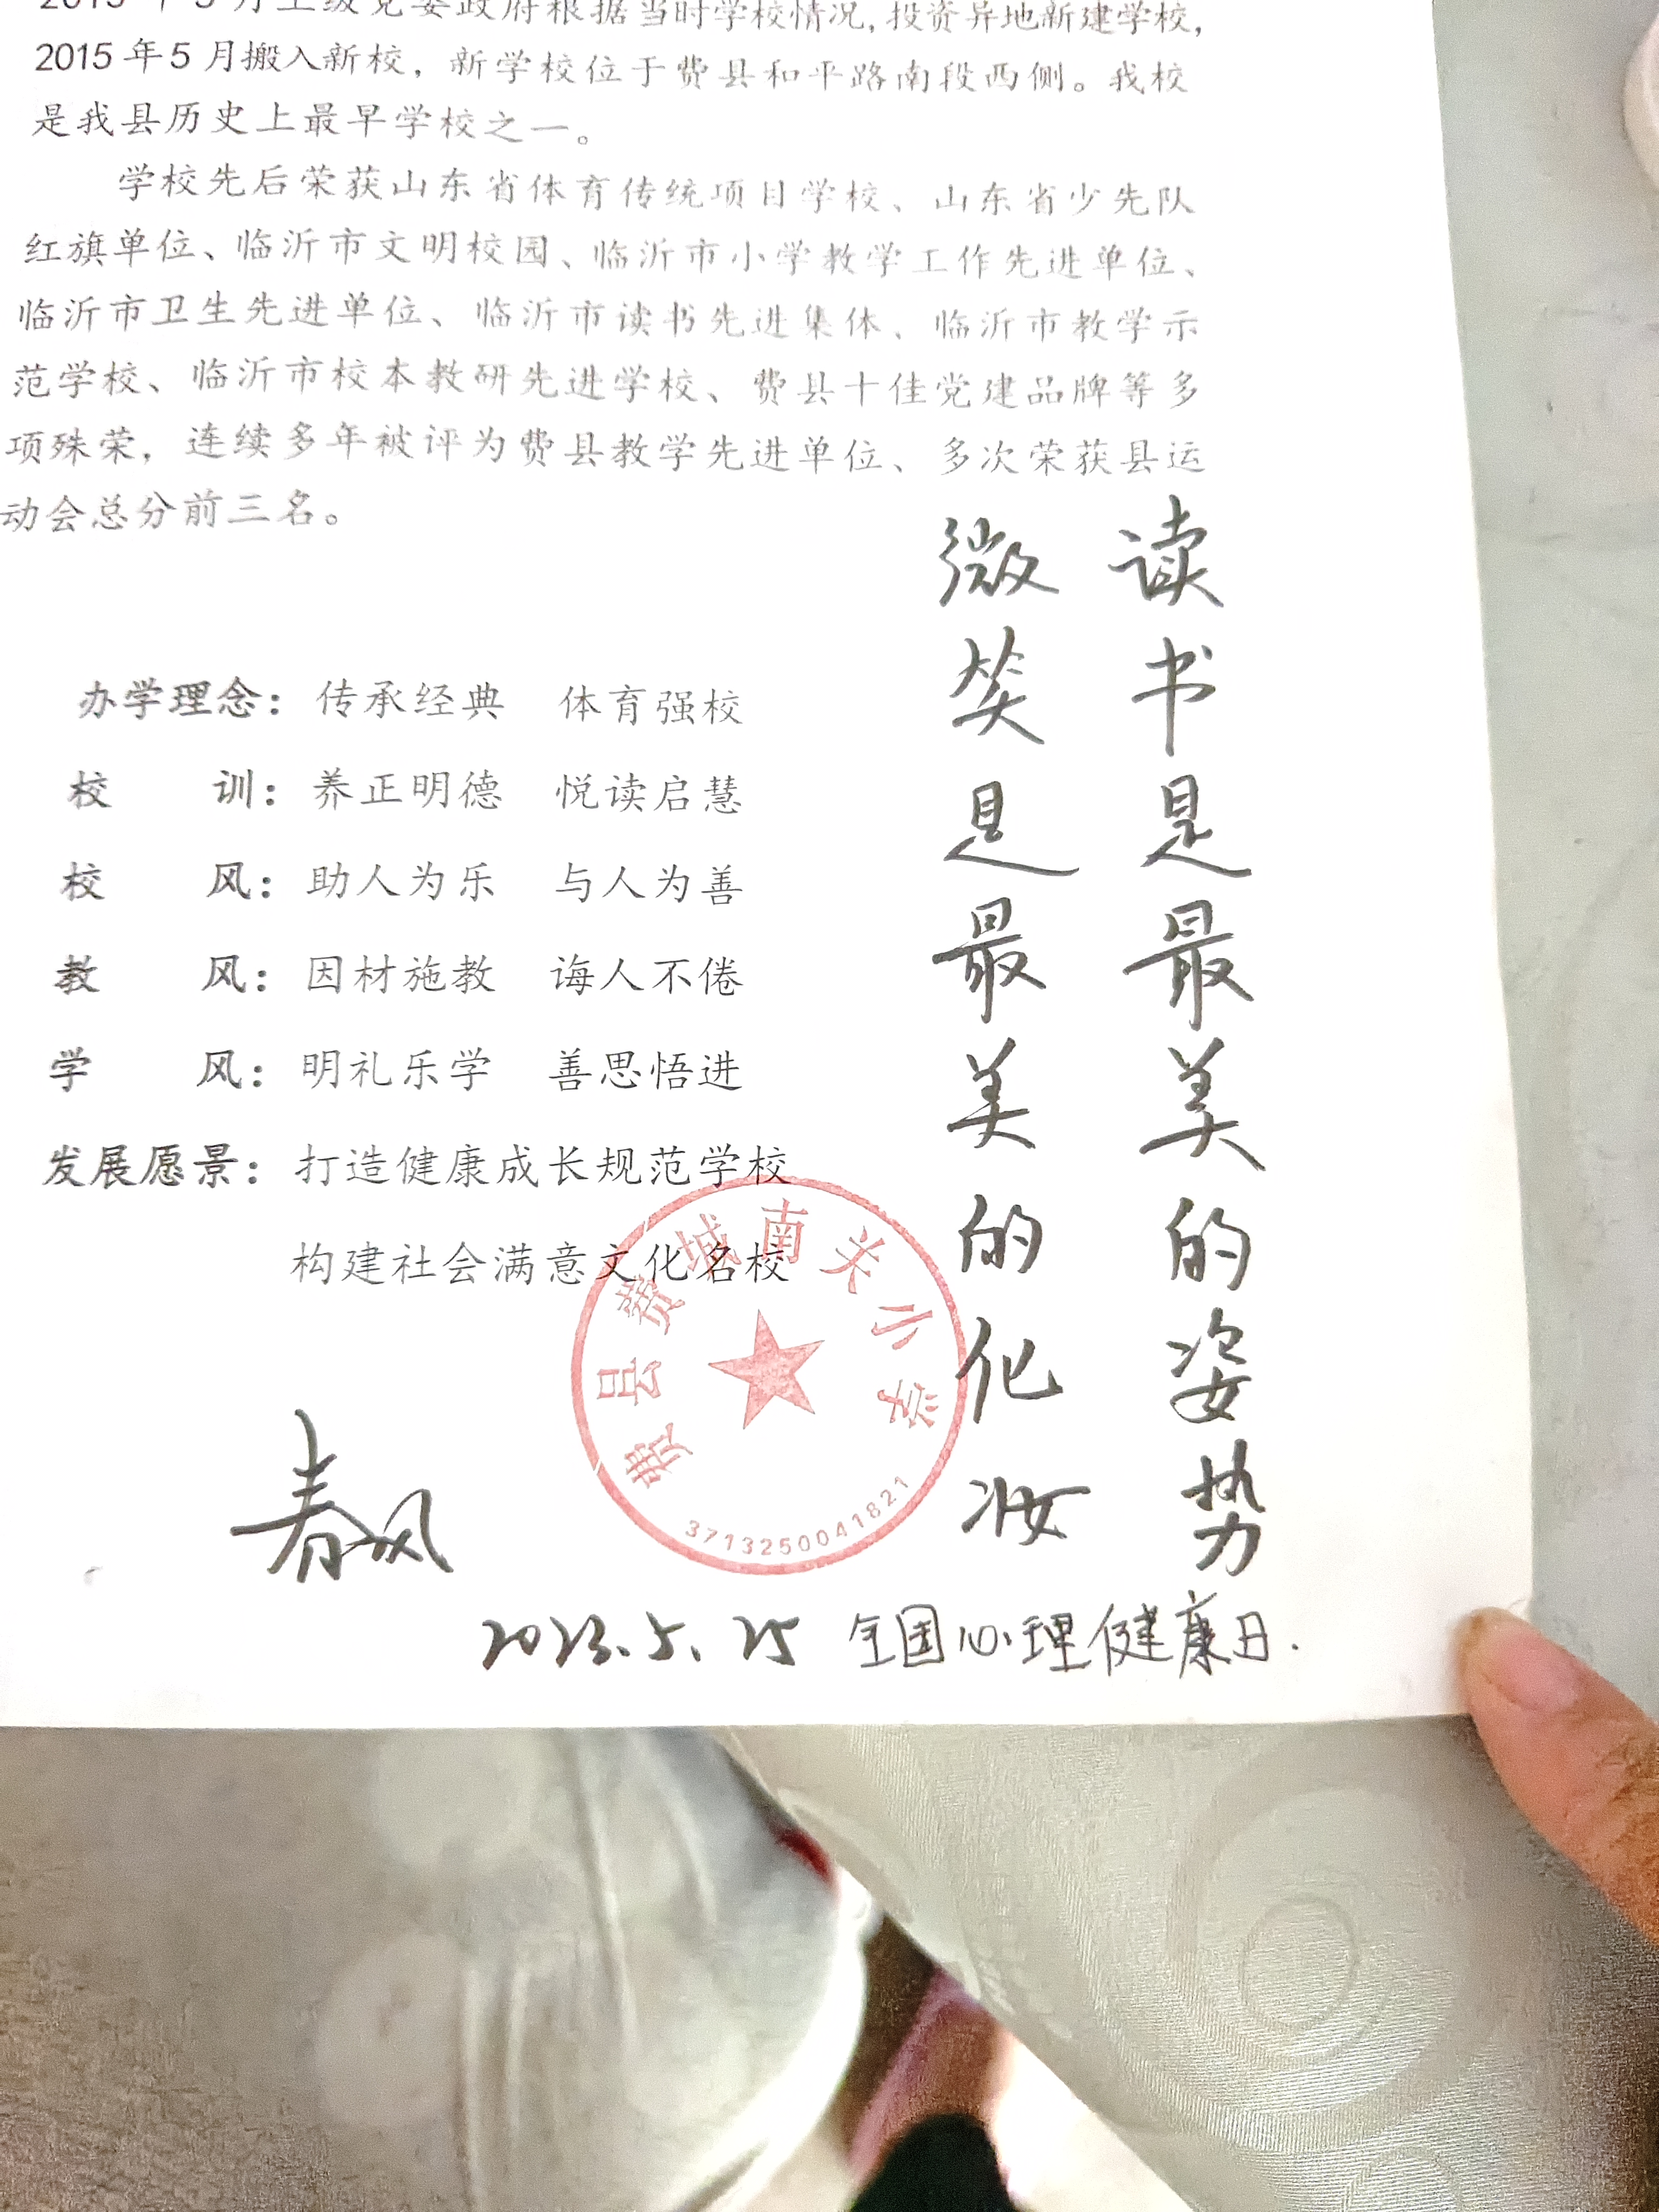 2015年5月搬入新校，新学校位于费县和平路南段西侧。我校
是我县历史上最早学校之一。
学校先后荣获山东省体育传统项目学校、山东省少先队
红旗单位、临沂市文明校园、临沂市小学教学工作先进单位、
临沂市卫生先进单位、临沂市读书先进集体、临沂市教学示
范学校、临沂市校本教研先进学校、费县十佳党建品牌等多
项殊荣，连续多年被评为费县教学先进单位、多次荣获县运
动会总分前三名。
办学理念：传承经典 体育强校
校 训：养正明德 悦读启慧
校 风：助人为乐 与人为善
教 风：因材施教 诲人不倦
学 风：明礼乐学 善思悟进
发展愿景：打造健康成长规范学校
构建社会满意文化名校
费县费城南关小学
3713250041821
读书是最美的姿势
微笑是最美的化妆
春风
2023.5.25 全国心理健康日.